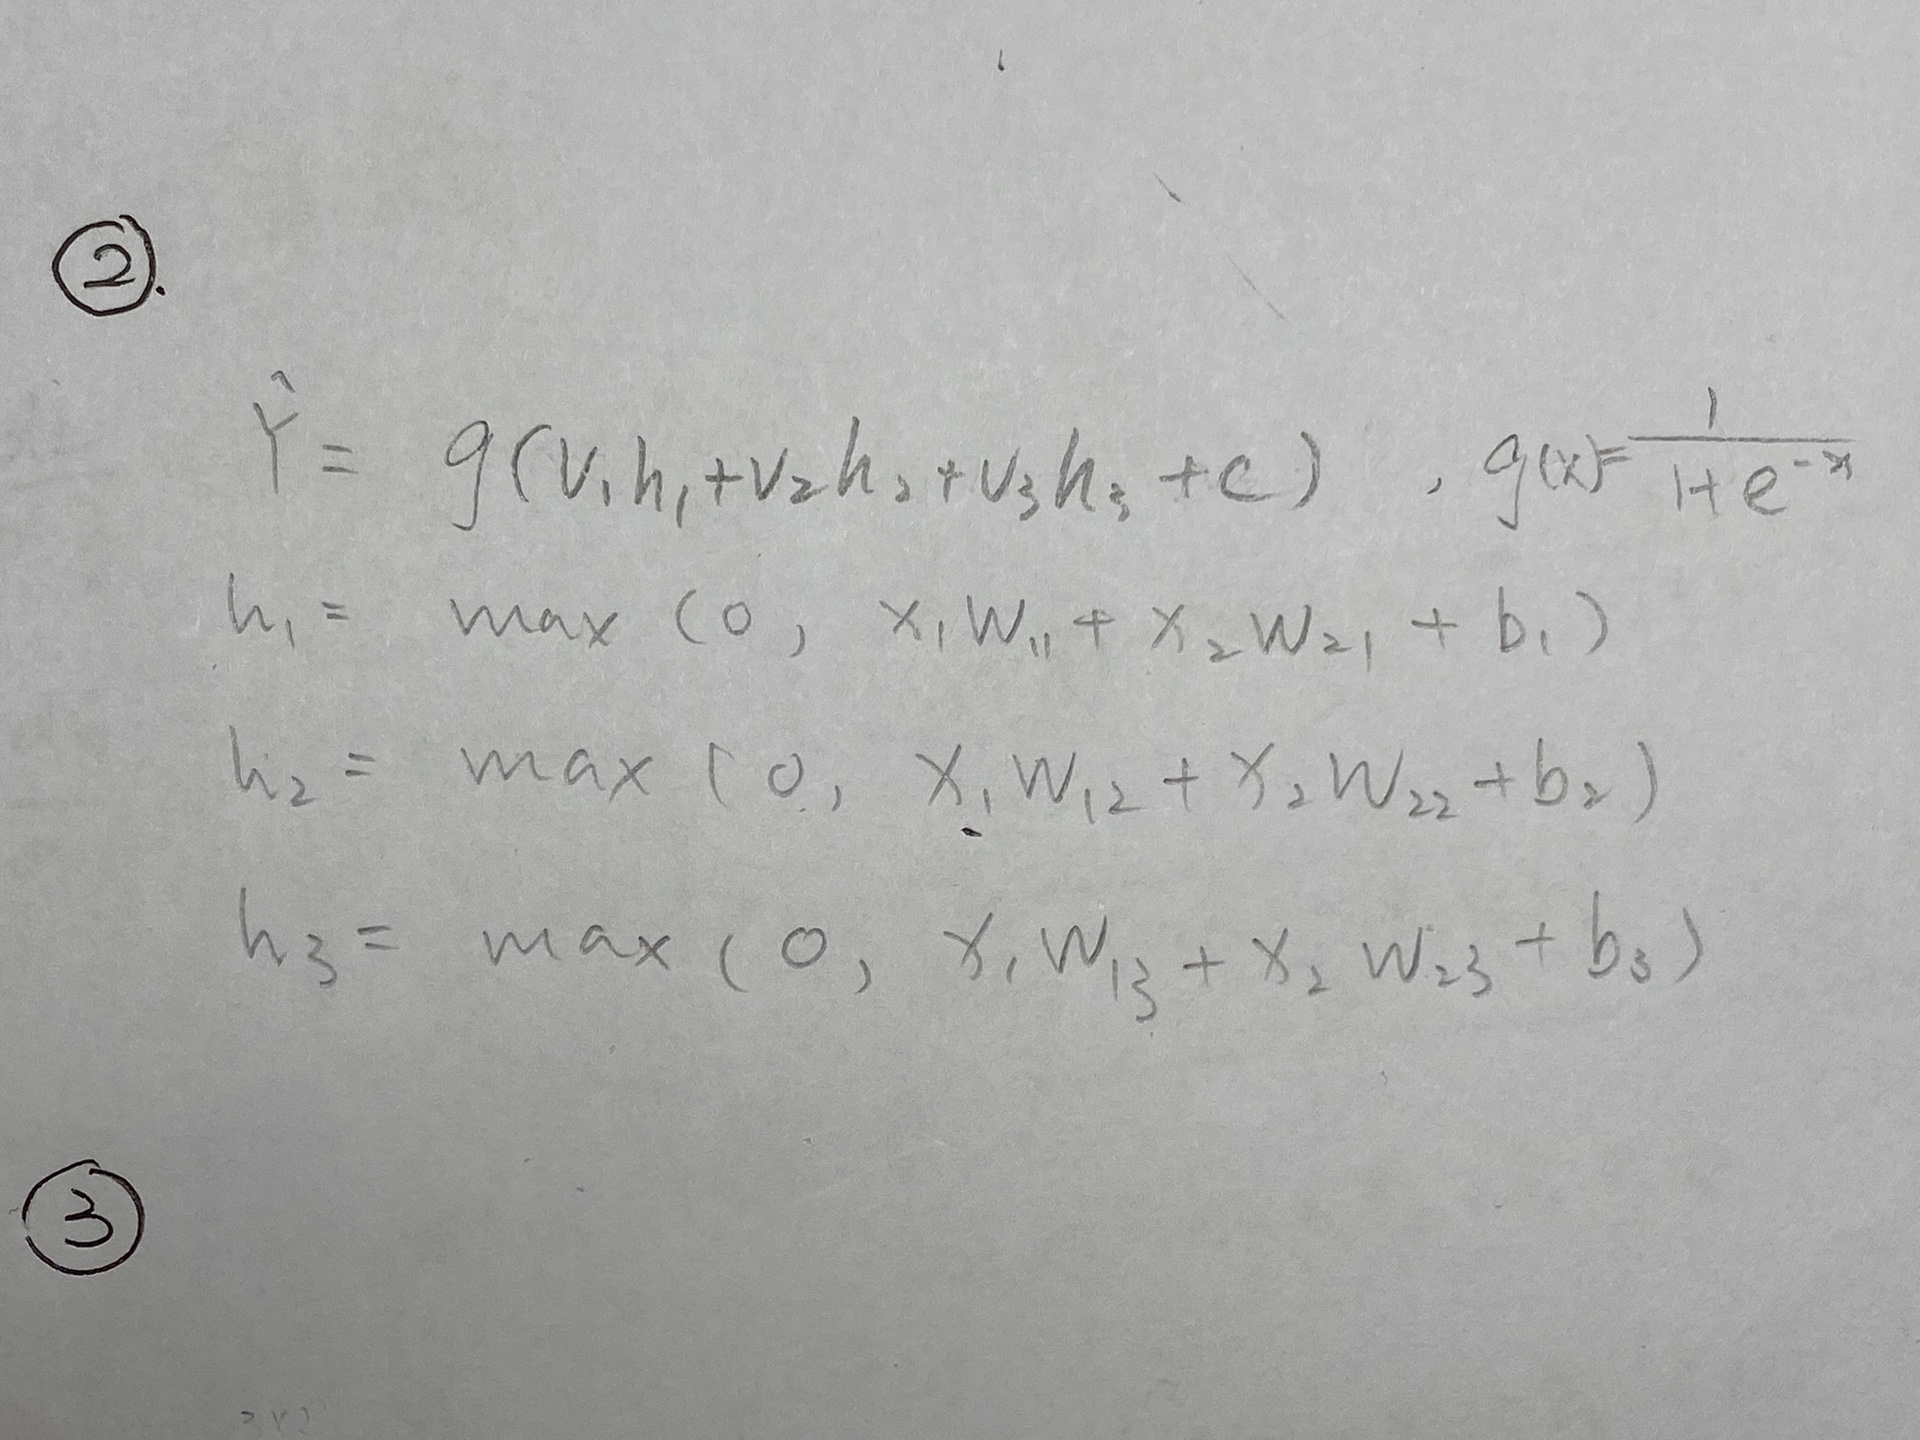 ②.
Ŷ = g(v₁h₁+v₂h₂+v₃h₃+c) , g(x)= 1/(1+e⁻ˣ)
h₁ = max (0, x₁w₁₁ + x₂w₂₁ + b₁)
h₂ = max (0, x₁w₁₂ + x₂w₂₂ + b₂)
h₃ = max (0, x₁w₁₃ + x₂w₂₃ + b₃)
③